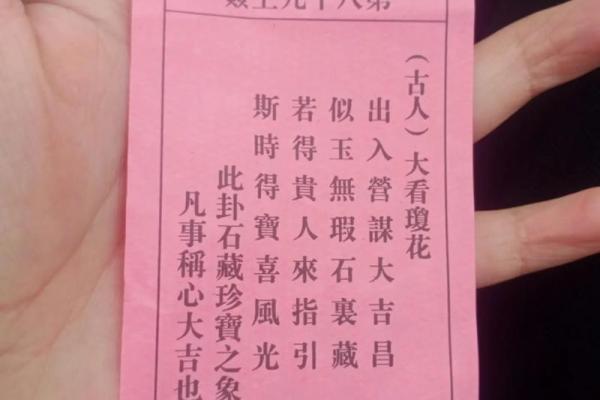 第八十九上
（古人）大看瓊花
出入營謀大吉昌
似玉無瑕石裏藏
若得貴人來指引
斯時得寶喜風光
此卦石藏珍寶之象
凡事稱心大吉也